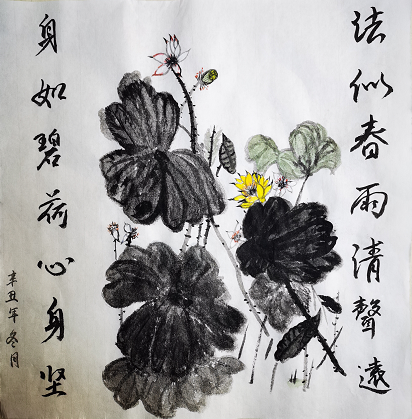 法似春雨清聲遠
身如碧荷心身坚
辛丑年冬月